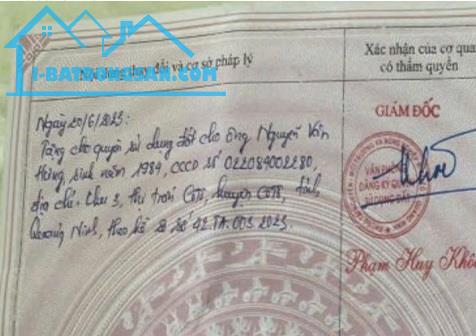 I-BATDONGSAN.COM
Nội dung thay đổi và cơ sở pháp lý
Xác nhận của cơ quan
có thẩm quyền
Ngày 20/6/2023:
Tặng cho quyền sử dụng đất cho ông Nguyễn Văn
Hùng, sinh năm 1984, CCCD số 022084002280,
địa chỉ: khu 3, thị trấn Cô Tô, huyện Cô Tô, tỉnh
Quảng Ninh, theo hồ sơ số 42.TA.003.2023.
GIÁM ĐỐC
VĂN PHÒNG
ĐĂNG KÝ QUYỀN
SỬ DỤNG ĐẤT
Phạm Huy Khô